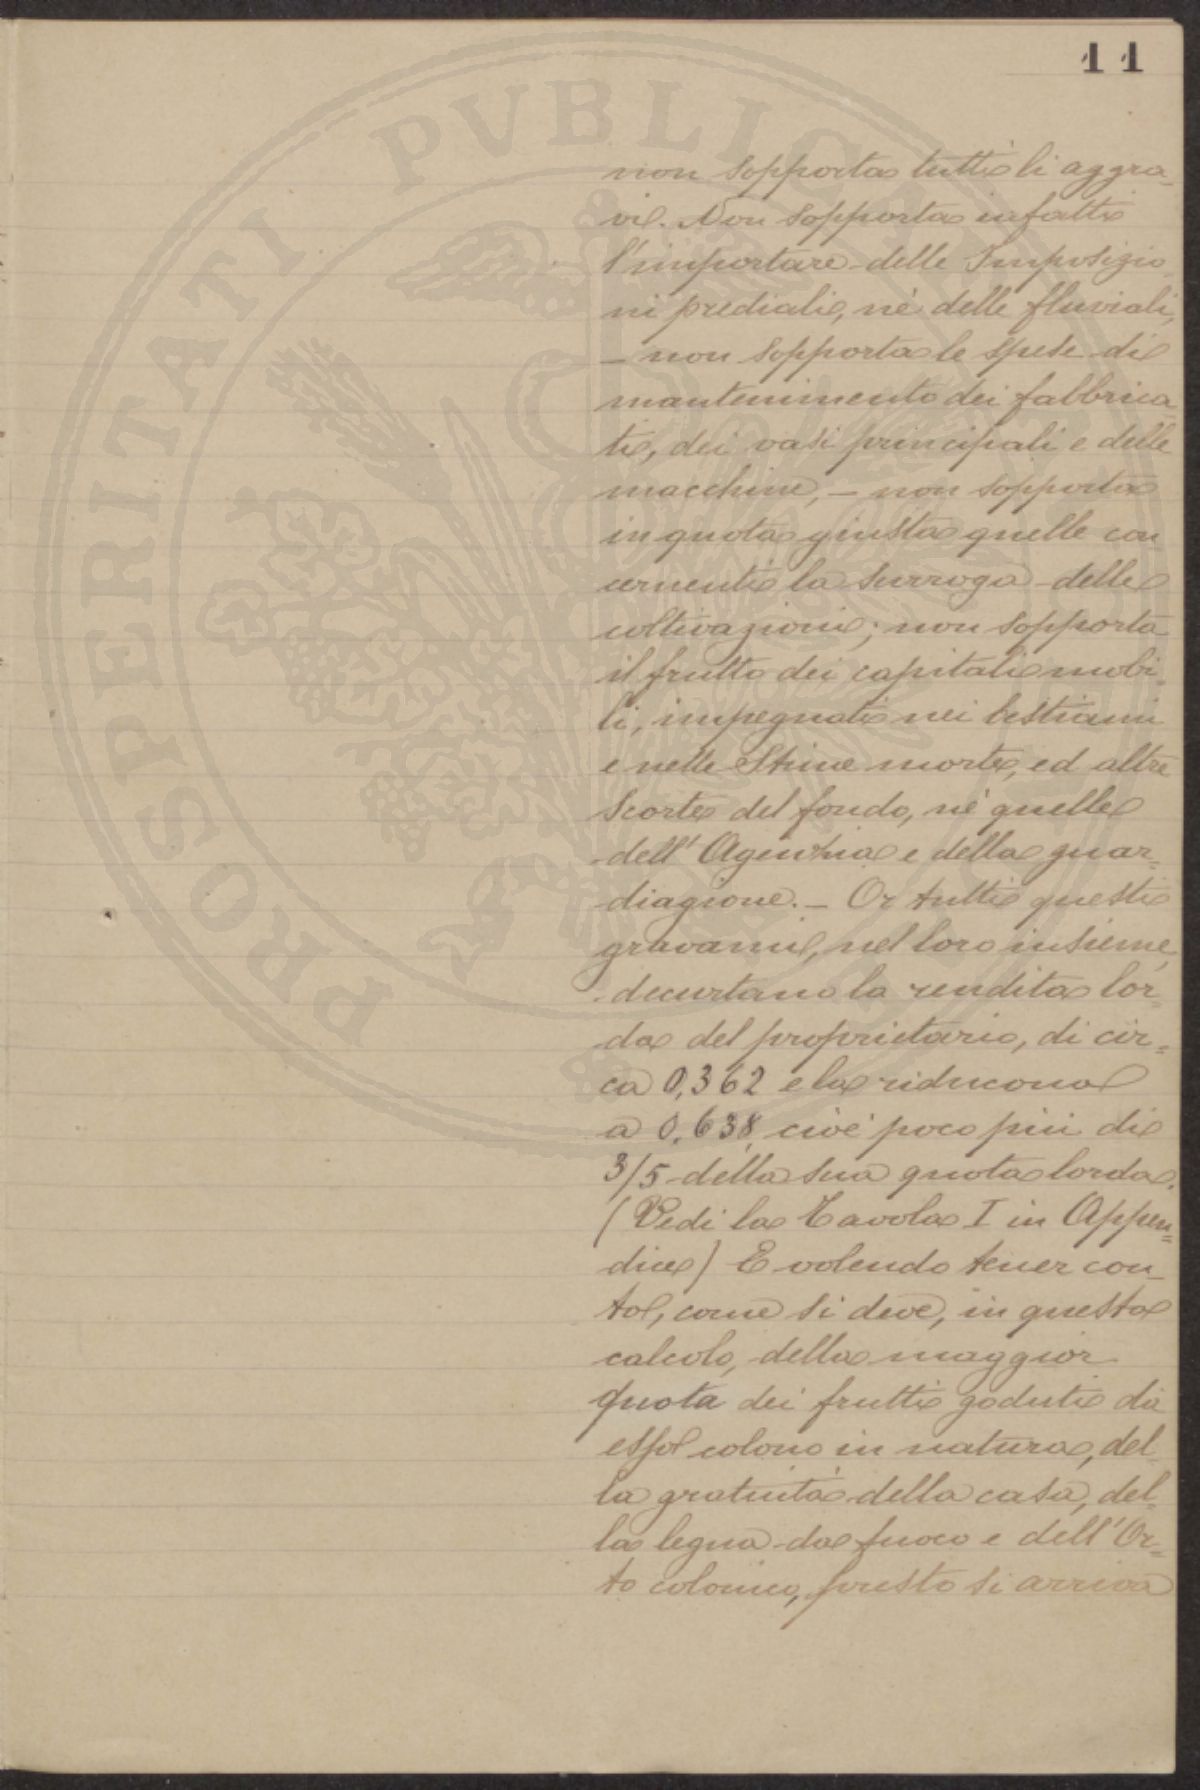 11
PROSPERITATI PVBLICAE
non sopporta tutti li aggra-
vi. Non sopporta infatti
l'importare delle Imposizio-
ni prediali, nè delle fluviali,
– non sopporta le spese di
mantenimento dei fabbrica-
ti, dei vasi principali e delle
macchine, – non sopporta
in quota giusta quelle con
cernenti la surroga delle
coltivazioni; non sopporta
il frutto dei capitali mobi-
li, impegnati nei bestiami
e nelle Stime morte, ed altre
scorte del fondo, nè quelle
dell' Agenzia e della guar=
diagione. – Or tutti questi
gravami, nel loro insieme,
decurtano la rendita lor=
da del proprietario, di cir=
ca 0,362 e la riducono
a 0,638, cioè poco più di
3/5 della sua quota lorda.
(Vedi la Tavola I in Appen=
dice) E volendo tener con-
to, come si deve, in questo
calcolo, della maggior
quota dei frutti goduti da
esso colono in natura, del-
la gratuità della casa, del-
la legna da fuoco e dell' Or=
to colonico, presto si arriva